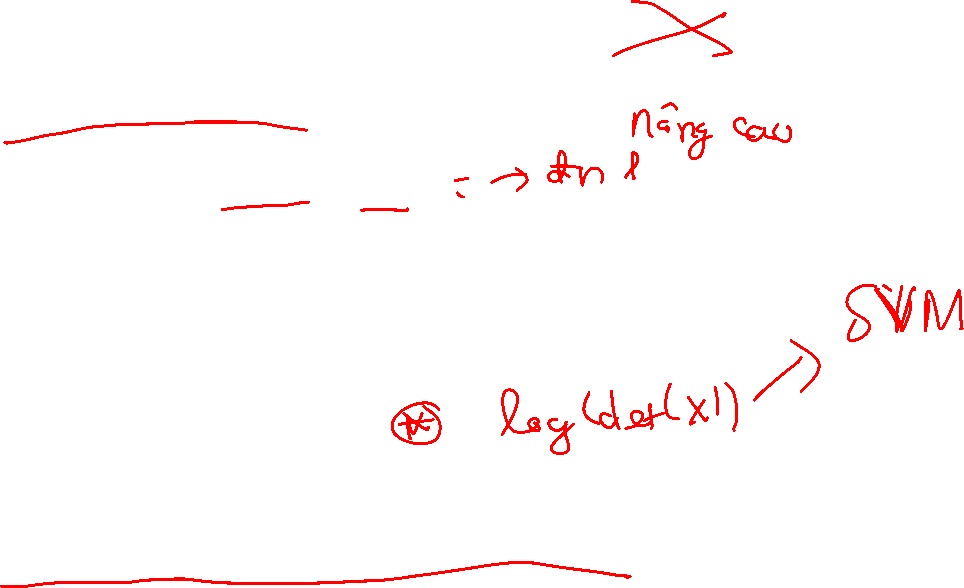 nâng cao
: → đn l
SVM
⊛ log(det(X))